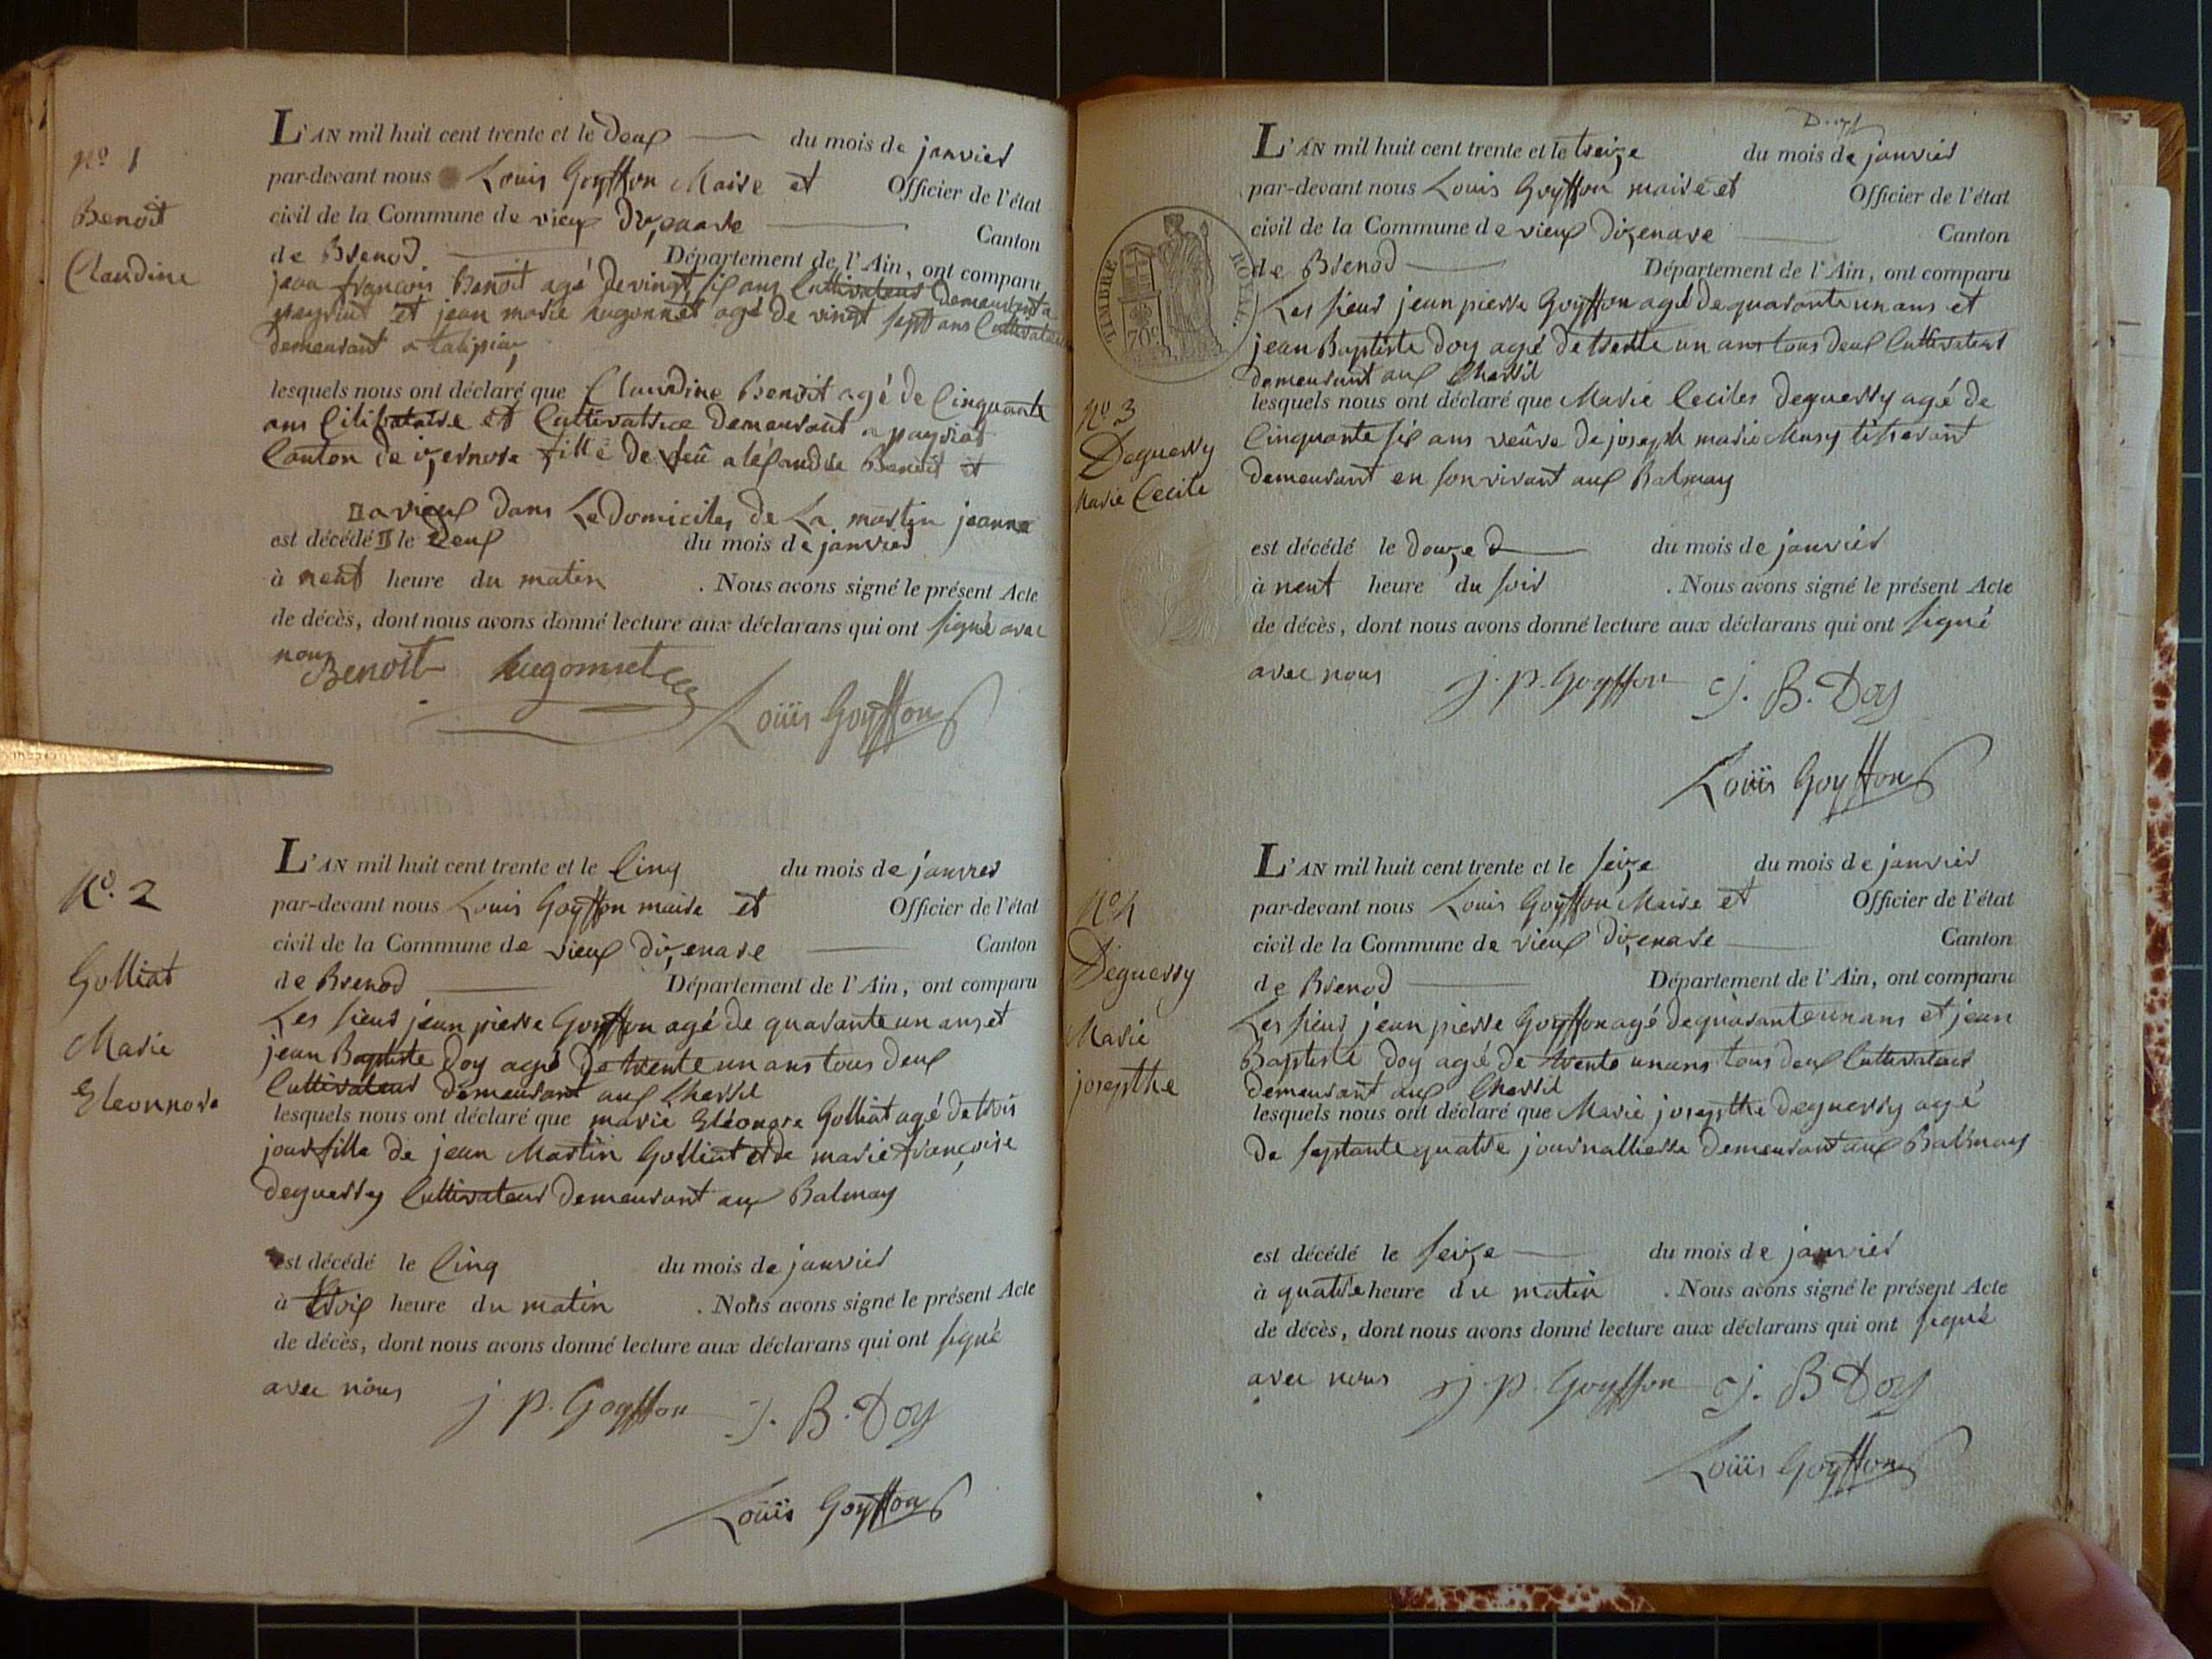 N° 1
Benoit
Claudine
L'AN mil huit cent trente et le deux du mois de janvier
par-devant nous Louis Goyffon Maire et Officier de l'état
civil de la Commune de vieux d'izenave Canton
de Brenod Département de l'Ain, ont comparu
jean francois Benoit agé de vingt six ans Cultivateur demeurant a
peyriat et jean marie hugonnet agé de vingt sept ans Cultivateur
demeurant a
lesquels nous ont déclaré que Claudine Benoit agé de Cinquante
ans Cilibataire et Cultivatrice demeurant a payriat
Canton de izernore fille de feû aléxandre Benoit et
a vieux dans Le domiciles de La martin jeanne
est décédé le deux du mois de janvier
à neuf heure du matin . Nous avons signé le présent Acte
de décès, dont nous avons donné lecture aux déclarans qui ont signé avec
nous
Benoit hugonnet
Louis Goyffon
N°. 2
Golliat
Marie
Eleonnore
L'AN mil huit cent trente et le Cinq du mois de janvier
par-devant nous Louis Goyffon maire et Officier de l'état
civil de la Commune de vieux d'izenave Canton
de Brenod Département de l'Ain, ont comparu
Les sieur jean pierre Goyffon agé de quarante un ans et
jean Baptiste Doy agé de trente un ans tous deux
Cultivateur demeurant aux Chersil
lesquels nous ont déclaré que marie Eléonore Golliat agé de trois
jour fille de jean Martin Golliat et de marie françoise
deguerry Cultivateur demeurant aux Balmay
est décédé le Cinq du mois de janvier
à trois heure du matin . Nous avons signé le présent Acte
de décès, dont nous avons donné lecture aux déclarans qui ont signé
avec nous j. p. Goyffon J. B. Doy
Louis Goyffon
L'AN mil huit cent trente et le treize du mois de janvier
par-devant nous Louis Goyffon maire et Officier de l'état
civil de la Commune de vieux d'izenave Canton
de Brenod Département de l'Ain, ont comparu
TIMBRE ROYAL.
70c
Les sieur jean pierre Goyffon agé de quarante un ans et
jean Baptiste doy agé de trente un ans tous deux Cultivateur
demeurant aux Chersil
N° 3
Deguerry
Marie Cecile
lesquels nous ont déclaré que Marie Ceciles deguerry agé de
Cinquante six ans veûve de joseph marie Musy tisserant
demeurant en son vivant aux Balmay
est décédé le douze du mois de janvier
à neuf heure du soir . Nous avons signé le présent Acte
de décès, dont nous avons donné lecture aux déclarans qui ont signé
avec nous j. p. Goyffon J. B. Doy
Louis Goyffon
N° 4
Deguerry
Marie
josepthe
L'AN mil huit cent trente et le seize du mois de janvier
par-devant nous Louis Goyffon Maire et Officier de l'état
civil de la Commune de vieux d'izenave Canton
de Brenod Département de l'Ain, ont comparu
Les sieur jean pierre Goyffon agé de quarante un ans et jean
Baptiste doy agé de trente un ans tous deux Cultivateur
demeurant aux Chersil
lesquels nous ont déclaré que Marie josepthe deguerry agé
de septante quatre journalliere demeurant aux Balmay
est décédé le seize du mois de janvier
à quatre heure du matin . Nous avons signé le présent Acte
de décès, dont nous avons donné lecture aux déclarans qui ont signé
avec nous j. p. Goyffon J. B Doy
Louis Goyffon